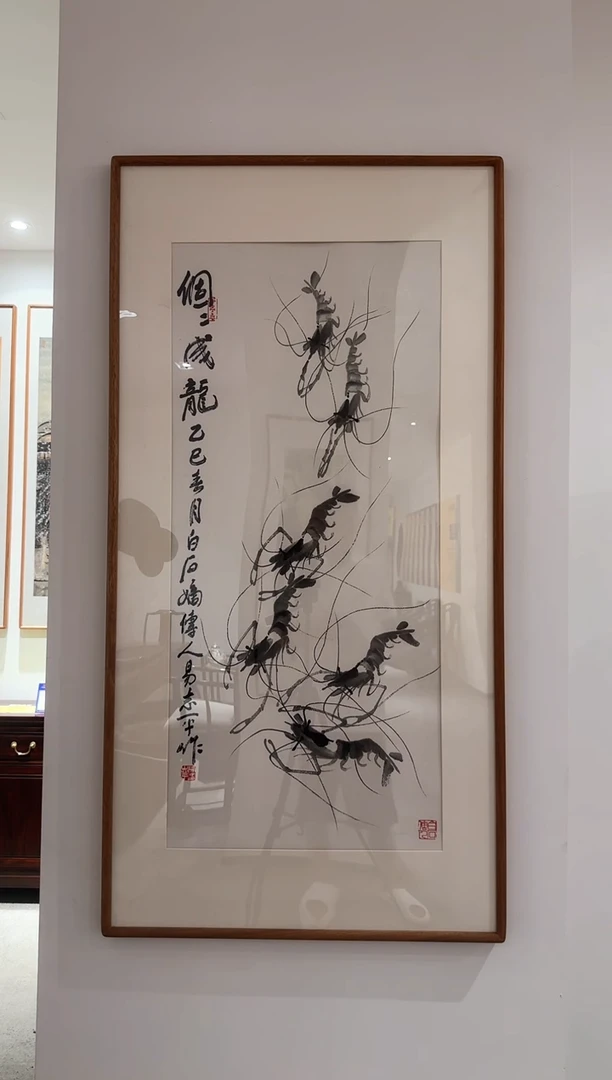 個々成龍乙巳春月白石嫡傳人易志平作